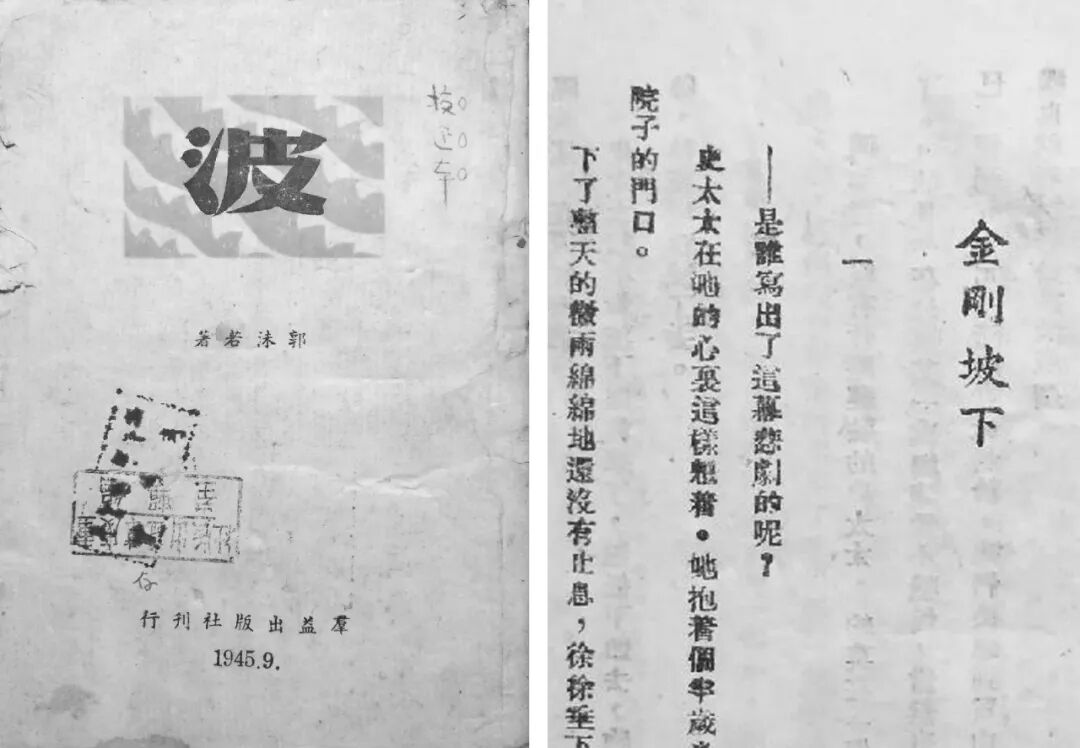 波
郭沫若著
羣益出版社刊行
1945.9.
金剛坡下
一
——是誰寫出了這幕悲劇的呢？
史太太在她的心裏這樣想着。她抱着個半歲
院子的門口。
下了整天的微雨綿綿地還沒有止息，徐徐垂下